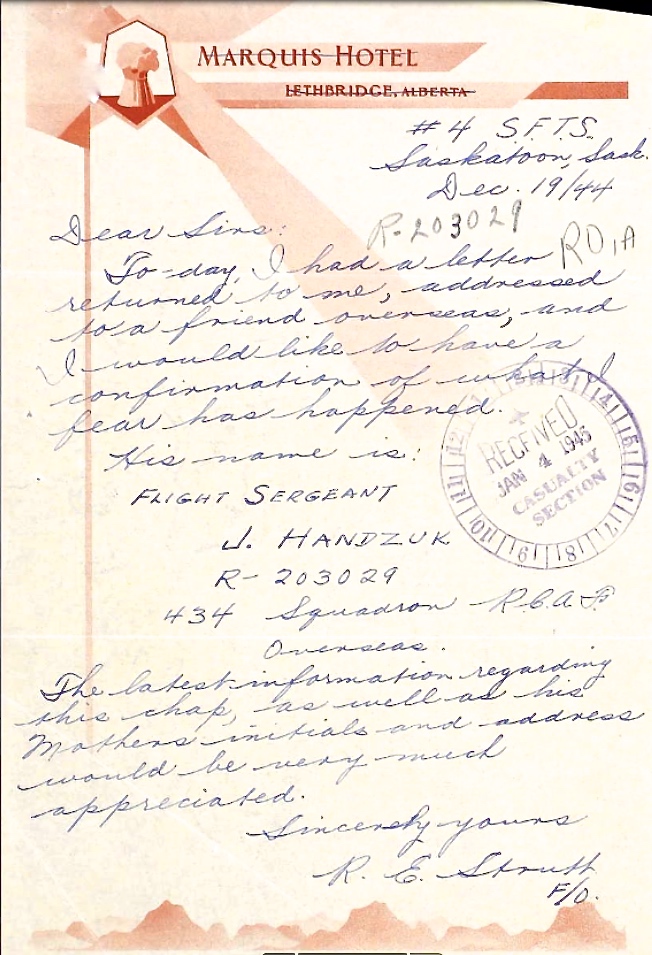 MARQUIS HOTEL
LETHBRIDGE, ALBERTA
# 4 S.F.T.S.
Saskatoon, Sask.
Dec. 19/44
R-203029
RO,A
Dear Sirs:
To-day, I had a letter
returned to me, addressed
to a friend overseas, and
I would like to have a
confirmation of what I
fear has happened.
His name is:
FLIGHT SERGEANT
J. HANDZUK
R-203029
434 Squadron R.C.A.F.
Overseas.
The latest information regarding
this chap, as well as his
Mothers initials and address
would be very much
appreciated.
Sincerely yours
R. E. Strutt
F/O.
RECEIVED
JAN 4 1945
CASUALTY
SECTION